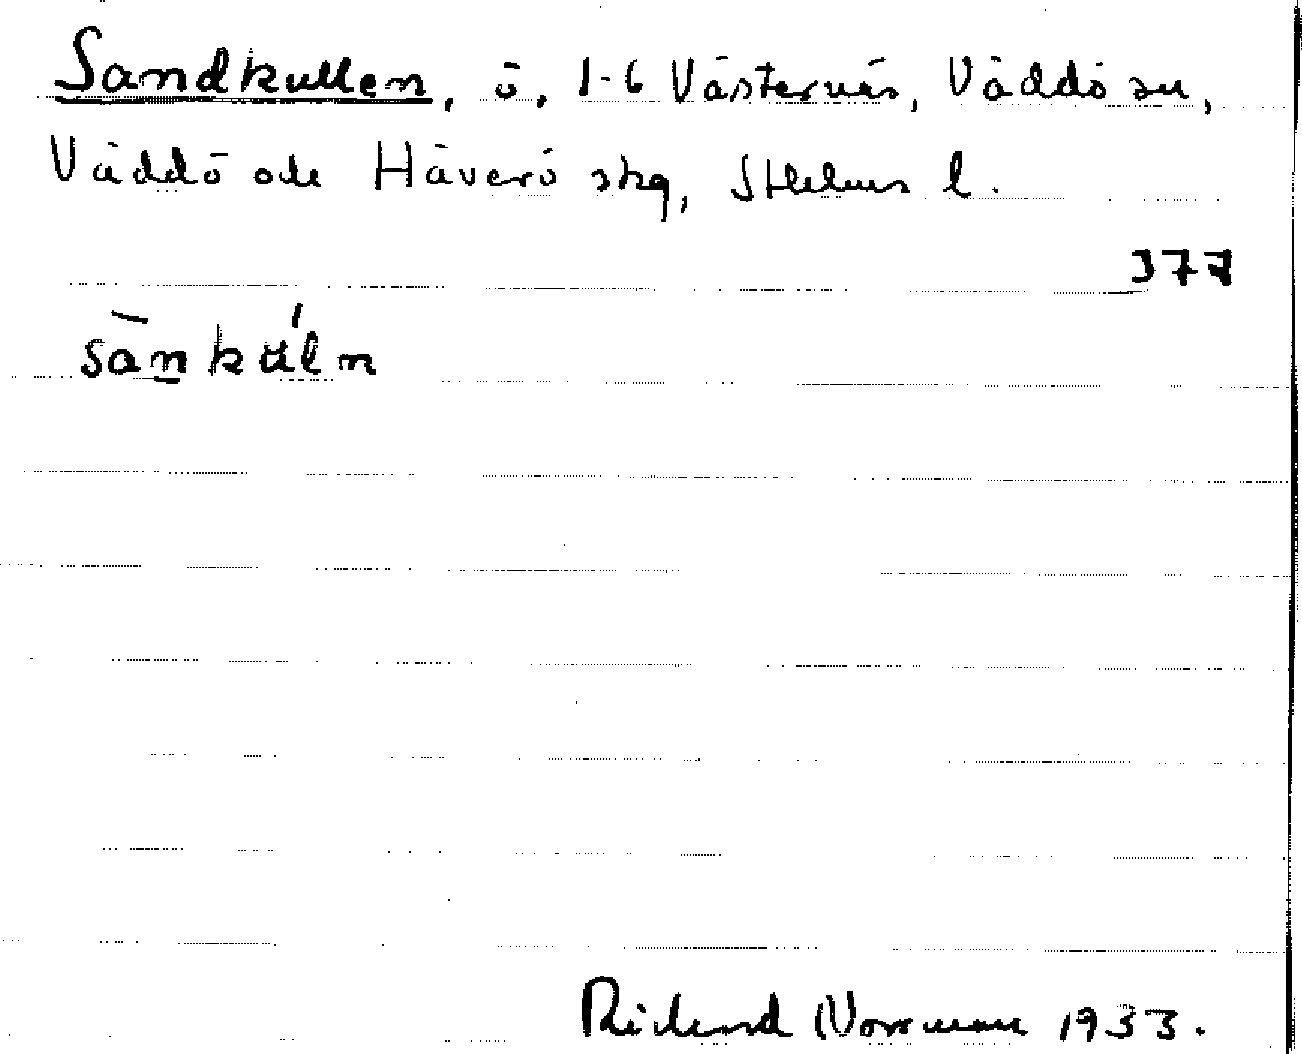 Sandkullen, ö, 1-6 Västernäs, Väddö sn,
Väddö och Häverö skg, Sthlms l.
377
sànkúln
Richard Norrman 1933.